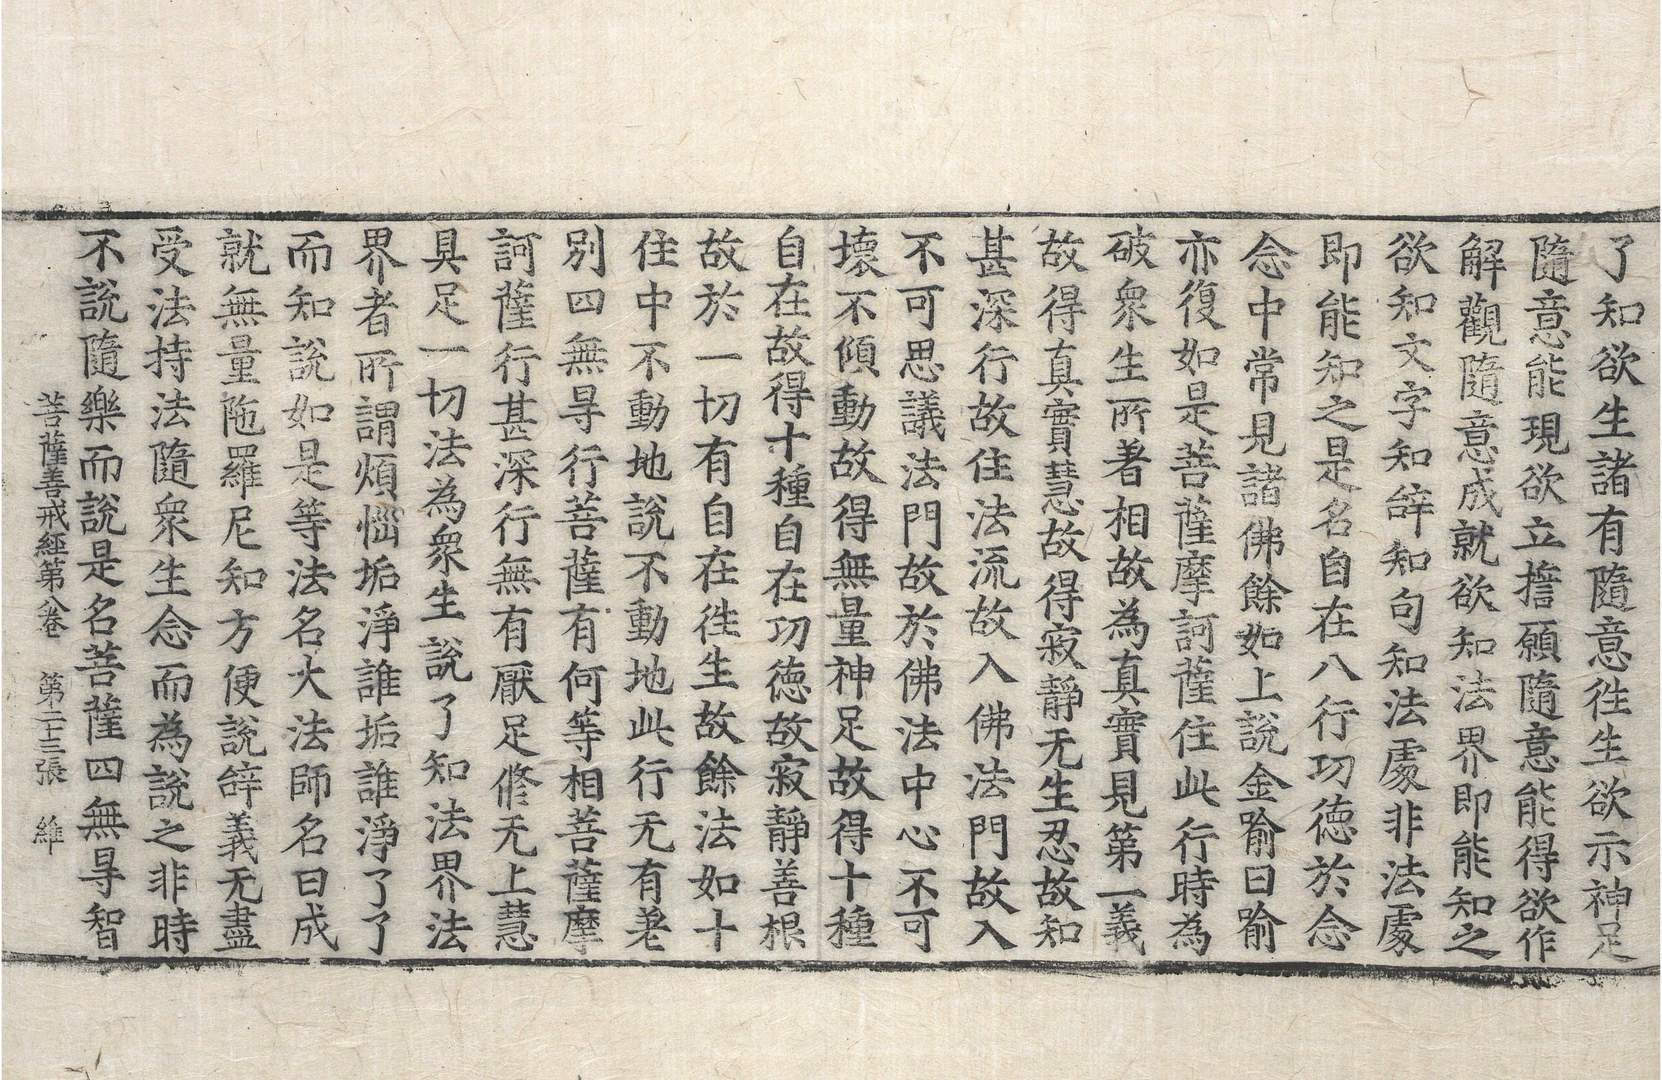 了知欲生諸有隨意徃生欲示神足
隨意能現欲立擔願隨意能得欲作
解觀隨意成就欲知法界即能知之
欲知文字知辝知句知法處非法處
即能知之是名自在八行功德於念
念中常見諸佛餘如上說金喻曰喻
亦復如是菩薩摩訶薩住此行時為
破衆生所著相故為真實見第一義
故得真實慧故得寂靜无生忍故知
甚深行故住法流故入佛法門故入
不可思議法門故於佛法中心不可
壞不傾動故得無量神足故得十種
自在故得十種自在功德故寂靜善根
故於一切有自在徃生故餘法如十
住中不動地說不動地此行无有差
別四無㝵行菩薩有何等相菩薩摩
訶薩行甚深行無有厭足脩无上慧
具足一切法為衆生說了知法界法
界者所謂煩惱垢淨誰垢誰淨了了
而知說如是等法名大法師名曰成
就無量陁羅尼知方便說辝義无盡
受法持法隨衆生念而為說之非時
不說隨樂而說是名菩薩四無㝵智
菩薩善戒經第八卷 第二十三張 維